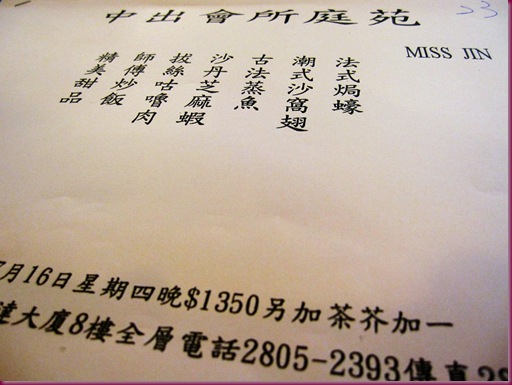 中出會所庭苑
MISS JIN
法式焗蠔
潮式沙窩翅
古法蒸魚
沙丹芝麻蝦
拔絲咕嚕肉
師傅炒飯
精美甜品
7月16日星期四晚$1350另加茶芥加一
達大廈8樓全層電話2805-2393傳真